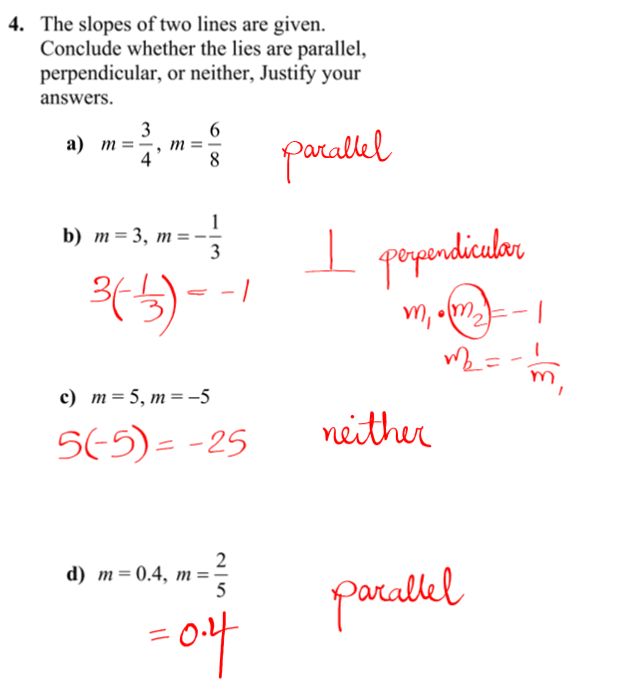 4. The slopes of two lines are given.
Conclude whether the lies are parallel,
perpendicular, or neither, Justify your
answers.
a) m = 3/4, m = 6/8 parallel
b) m = 3, m = -1/3 ⊥ perpendicular
3(-1/3) = -1 m₁ • m₂ = -1
m₂ = -1/m₁
c) m = 5, m = -5
5(-5) = -25 neither
d) m = 0.4, m = 2/5 parallel
= 0.4